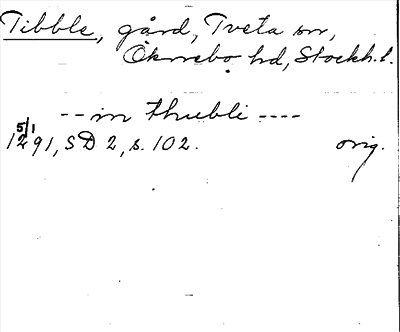 Tibble, gård, Tveta sn,
Öknebo hd, Stockh. l.
-- in thubli ----
5/1
1291, SD 2, s. 102. orig.